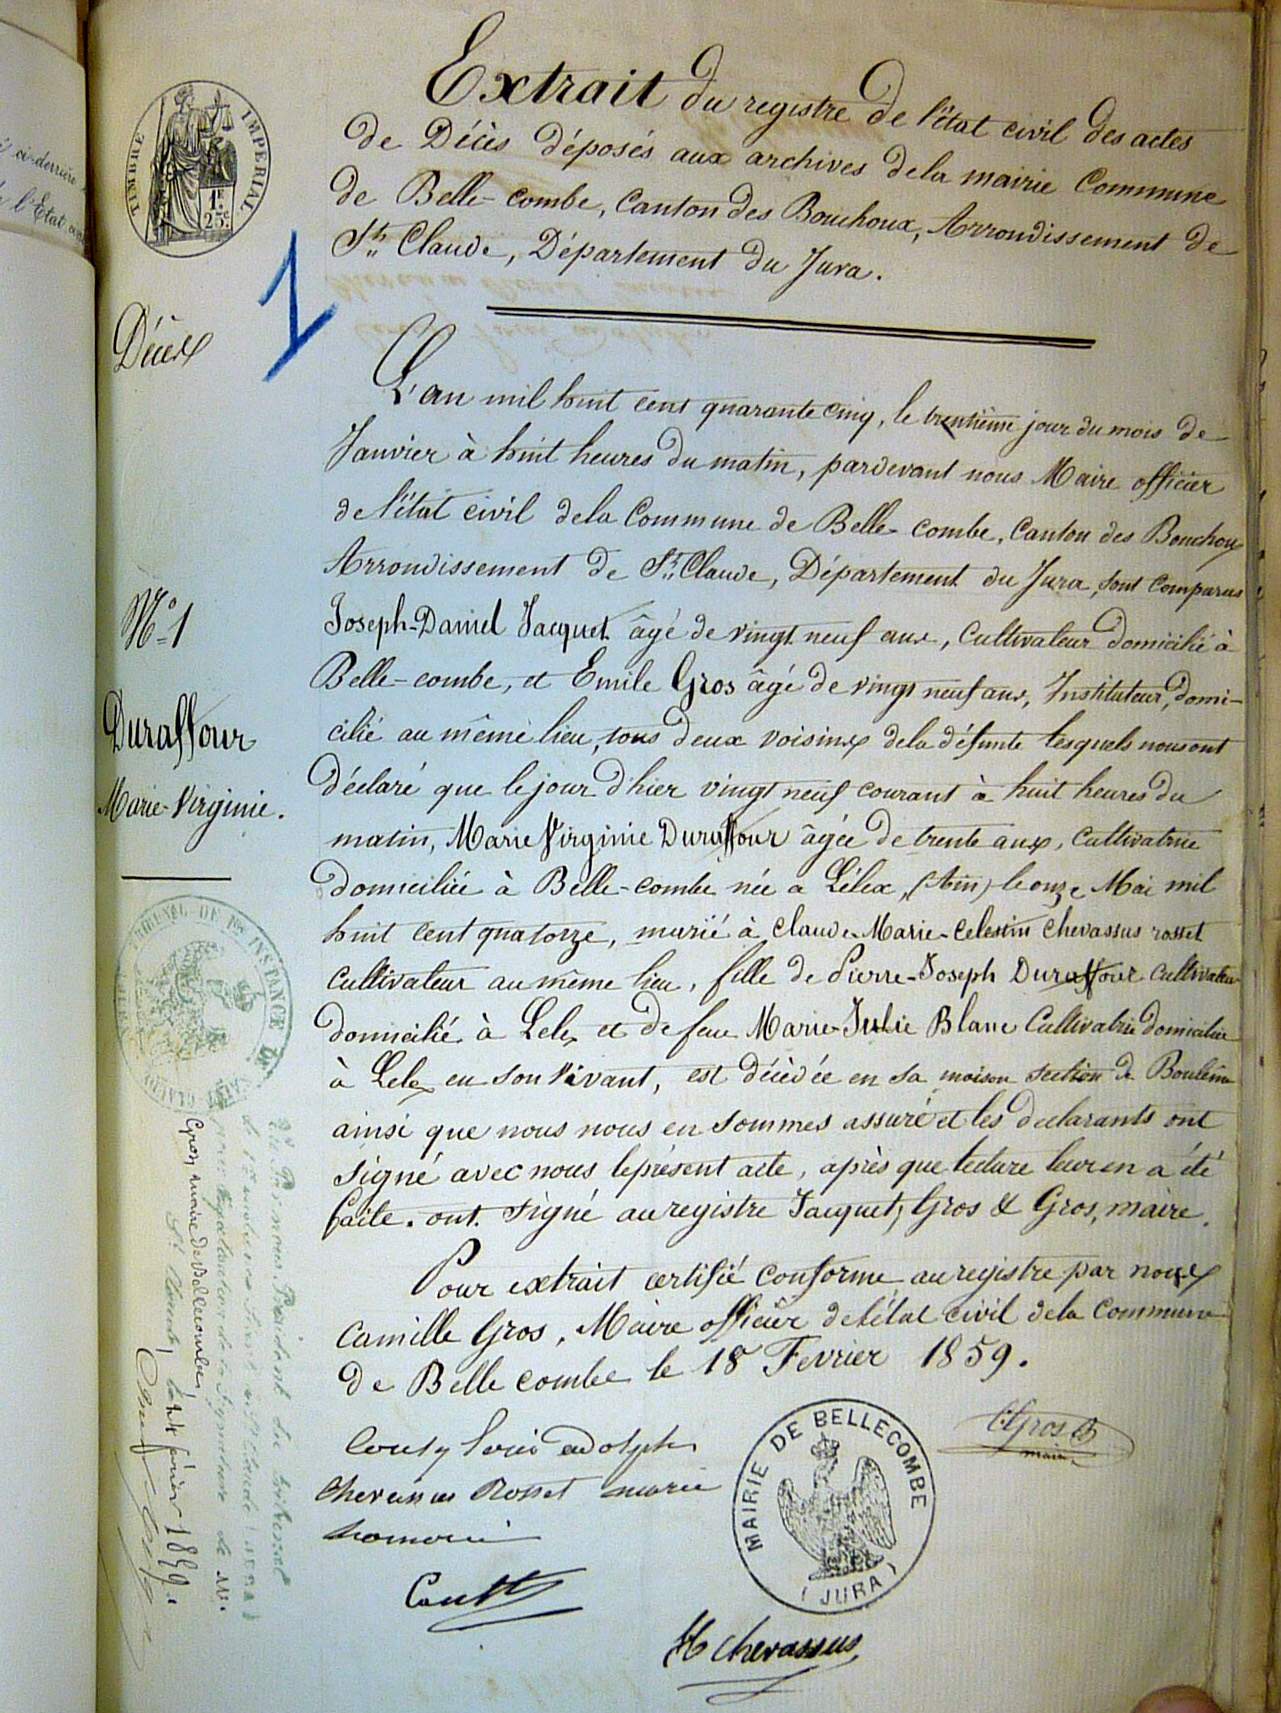 ci-derrière
l'Etat
TIMBRE IMPERIAL
1F.
25c.
Extrait du registre de l'état civil des actes
de Décès déposés aux archives de la mairie Commune
de Belle-combe, Canton des Bouchoux, Arrondissement de
St. Claude, Département du Jura.
1
Décès
L'an mil huit cent quarante cinq, le trentième jour du mois de
Janvier à huit heures du matin, pardevant nous Maire officier
de l'état civil de la Commune de Belle-combe, Canton des Bouchoux
Arrondissement de St. Claude, Département du Jura, sont comparus
No 1
Joseph-Daniel Jacquet âgé de vingt neuf ans, Cultivateur domicilié à
Belle-combe, et Emile Gros âgé de vingt neuf ans, Instituteur, domi-
Duraffour
cilié au même lieu, tous deux voisins de la défunte lesquels nous ont
Marie-Virginie.
déclaré que le jour d'hier vingt neuf courant à huit heures du
matin, Marie Virginie Duraffour âgée de trente ans, Cultivatrice
domiciliée à Belle-combe née a Lélex, (Ain) le onze Mai mil
huit cent quatorze, marié à Claude-Marie-Celestin Chevassus rosset
cultivateur au même lieu, fille de Pierre-Joseph Duraffour Cultivateur
domicilié à Lelex et de feue Marie-Julie Blanc Cultivatrice domiciliée
à Lelex en son Vivant, est décédée en sa maison section de Boulème
ainsi que nous nous en sommes assuré et les declarants ont
signé avec nous le présent acte, après que lecture leur en a été
faite. ont signé au registre Jacquet, Gros & Gros, maire.
Pour extrait certifié conforme au registre par nous
Camille Gros, Maire officier de l'état civil de la Commune
de Belle combe le 18 Fevrier 1859.
C. Gros
maire
Chevassus Rosset marie
MAIRIE DE BELLECOMBE
(JURA)
Chevassus
TRIBUNAL DE 1re INSTANCE DE
SAINT CLAUDE
Vu Par nous Président du tribunal
de 1re instance séant à St Claude (JURA)
pour légalisation de la signature de Mr.
Gros, maire de Bellecombe,
St Claude, le 24 février 1859.